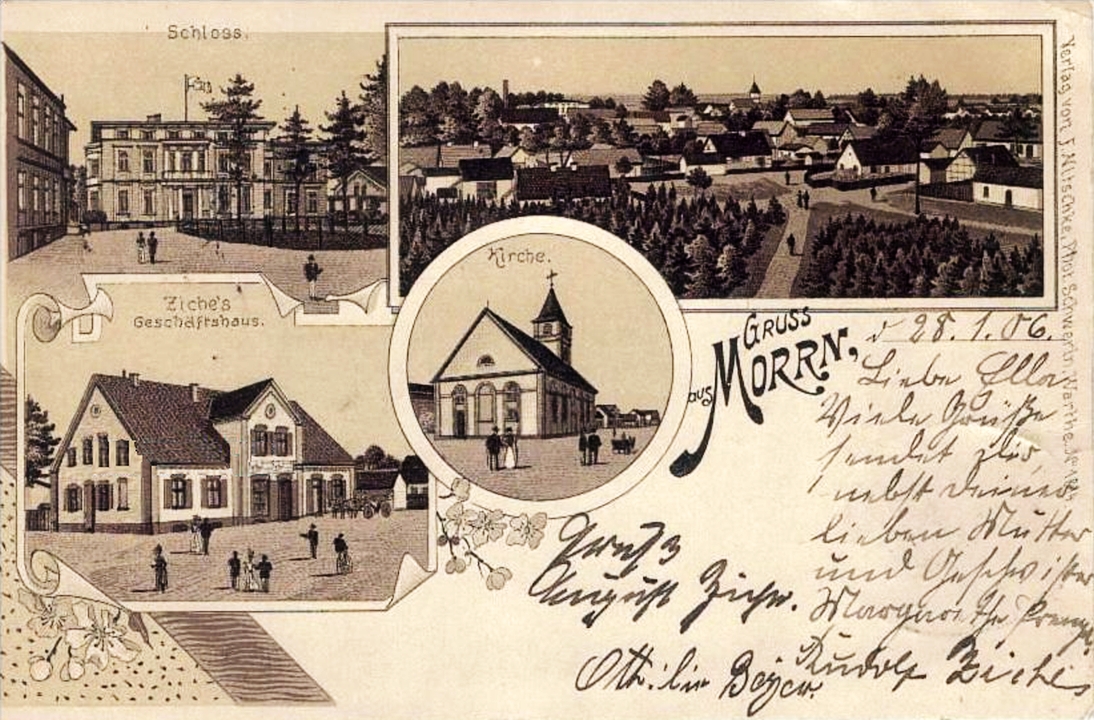 Schloss.
Ziche's
Geschäftshaus.
Kirche.
GRUSS
aus MORRN,
d 28.1.06.
Liebe Ella
Viele Grüße
sendet Dir,
nebst Deiner
lieben Mutter
und Geschwister
Margarethe
Rudolf Ziche
Gruß
August Ziche.
Ottilie Beyer.
Verlag von F. Nitschke, Phot. Schwerin, Warthe.